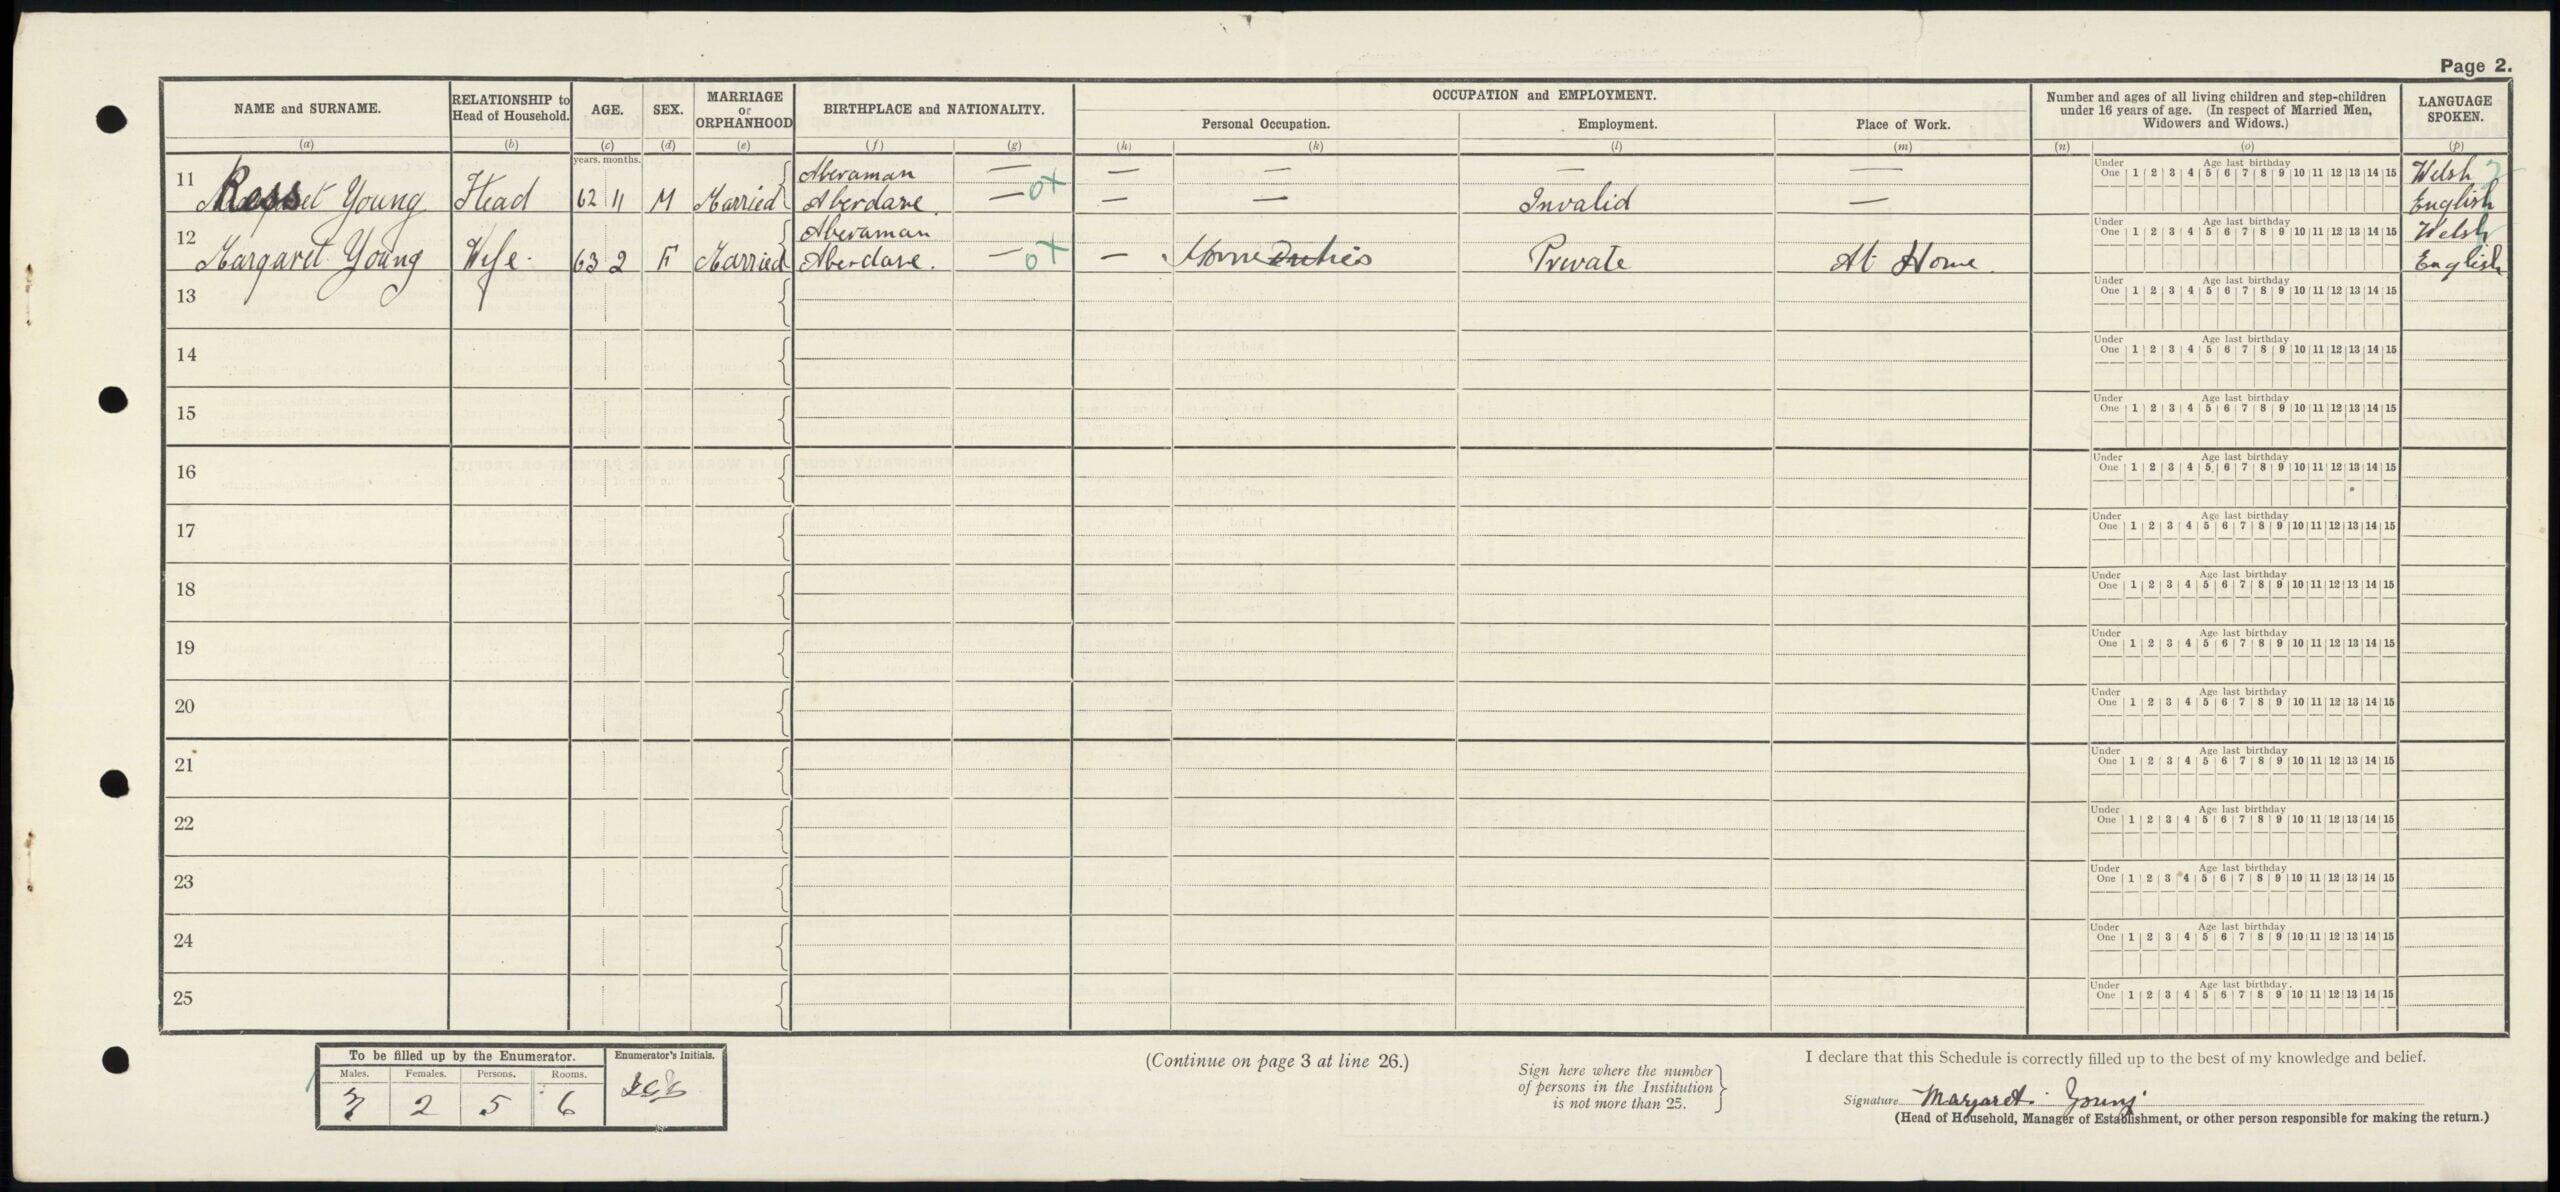 Page 2.
NAME and SURNAME.
RELATIONSHIP to Head of Household.
AGE.
SEX.
MARRIAGE or ORPHANHOOD
BIRTHPLACE and NATIONALITY.
OCCUPATION and EMPLOYMENT.
Personal Occupation.
Employment.
Place of Work.
Number and ages of all living children and step-children
under 16 years of age. (In respect of Married Men,
Widowers and Widows.)
LANGUAGE SPOKEN.
(a) (b) (c) (d) (e) (f) (g) (h) (k) (l) (m) (n) (o) (p)
years. months.
Under One Age last birthday 1 2 3 4 5 6 7 8 9 10 11 12 13 14 15
11 Young Head 62 11 M Married Aberaman Aberdare. — 0+ — — Invalid — Welsh English
Under One Age last birthday 1 2 3 4 5 6 7 8 9 10 11 12 13 14 15
12 Margaret Young Wife. 63 2 F Married Aberaman Aberdare. — 0+ — Home Duties Private At Home Welsh English
13 Under One Age last birthday 1 2 3 4 5 6 7 8 9 10 11 12 13 14 15
14 Under One Age last birthday 1 2 3 4 5 6 7 8 9 10 11 12 13 14 15
15 Under One Age last birthday 1 2 3 4 5 6 7 8 9 10 11 12 13 14 15
16 Under One Age last birthday 1 2 3 4 5 6 7 8 9 10 11 12 13 14 15
17 Under One Age last birthday 1 2 3 4 5 6 7 8 9 10 11 12 13 14 15
18 Under One Age last birthday 1 2 3 4 5 6 7 8 9 10 11 12 13 14 15
19 Under One Age last birthday 1 2 3 4 5 6 7 8 9 10 11 12 13 14 15
20 Under One Age last birthday 1 2 3 4 5 6 7 8 9 10 11 12 13 14 15
21 Under One Age last birthday 1 2 3 4 5 6 7 8 9 10 11 12 13 14 15
22 Under One Age last birthday 1 2 3 4 5 6 7 8 9 10 11 12 13 14 15
23 Under One Age last birthday 1 2 3 4 5 6 7 8 9 10 11 12 13 14 15
24 Under One Age last birthday 1 2 3 4 5 6 7 8 9 10 11 12 13 14 15
25 Under One Age last birthday 1 2 3 4 5 6 7 8 9 10 11 12 13 14 15
To be filled up by the Enumerator.
Enumerator's Initials.
Males. Females. Persons. Rooms.
3 2 5 6
(Continue on page 3 at line 26.)
Sign here where the number
of persons in the Institution
is not more than 25.
I declare that this Schedule is correctly filled up to the best of my knowledge and belief.
Signature Margaret Young
(Head of Household, Manager of Establishment, or other person responsible for making the return.)